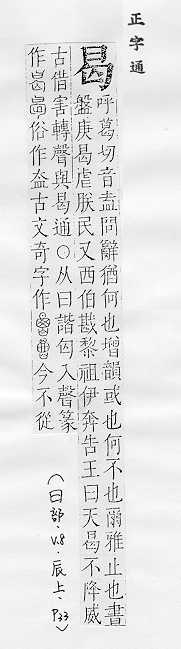 正字通
曷
呼葛切音盍問辭猶何也增韻或也何不也爾雅止也書
盤庚曷虐朕民又西伯戡黎祖伊奔告王曰天曷不降威
古借害轉聲與曷通○从曰諧匃入聲篆
俗作盇古文奇字作今不從
(日部.V.8.辰上.P33)